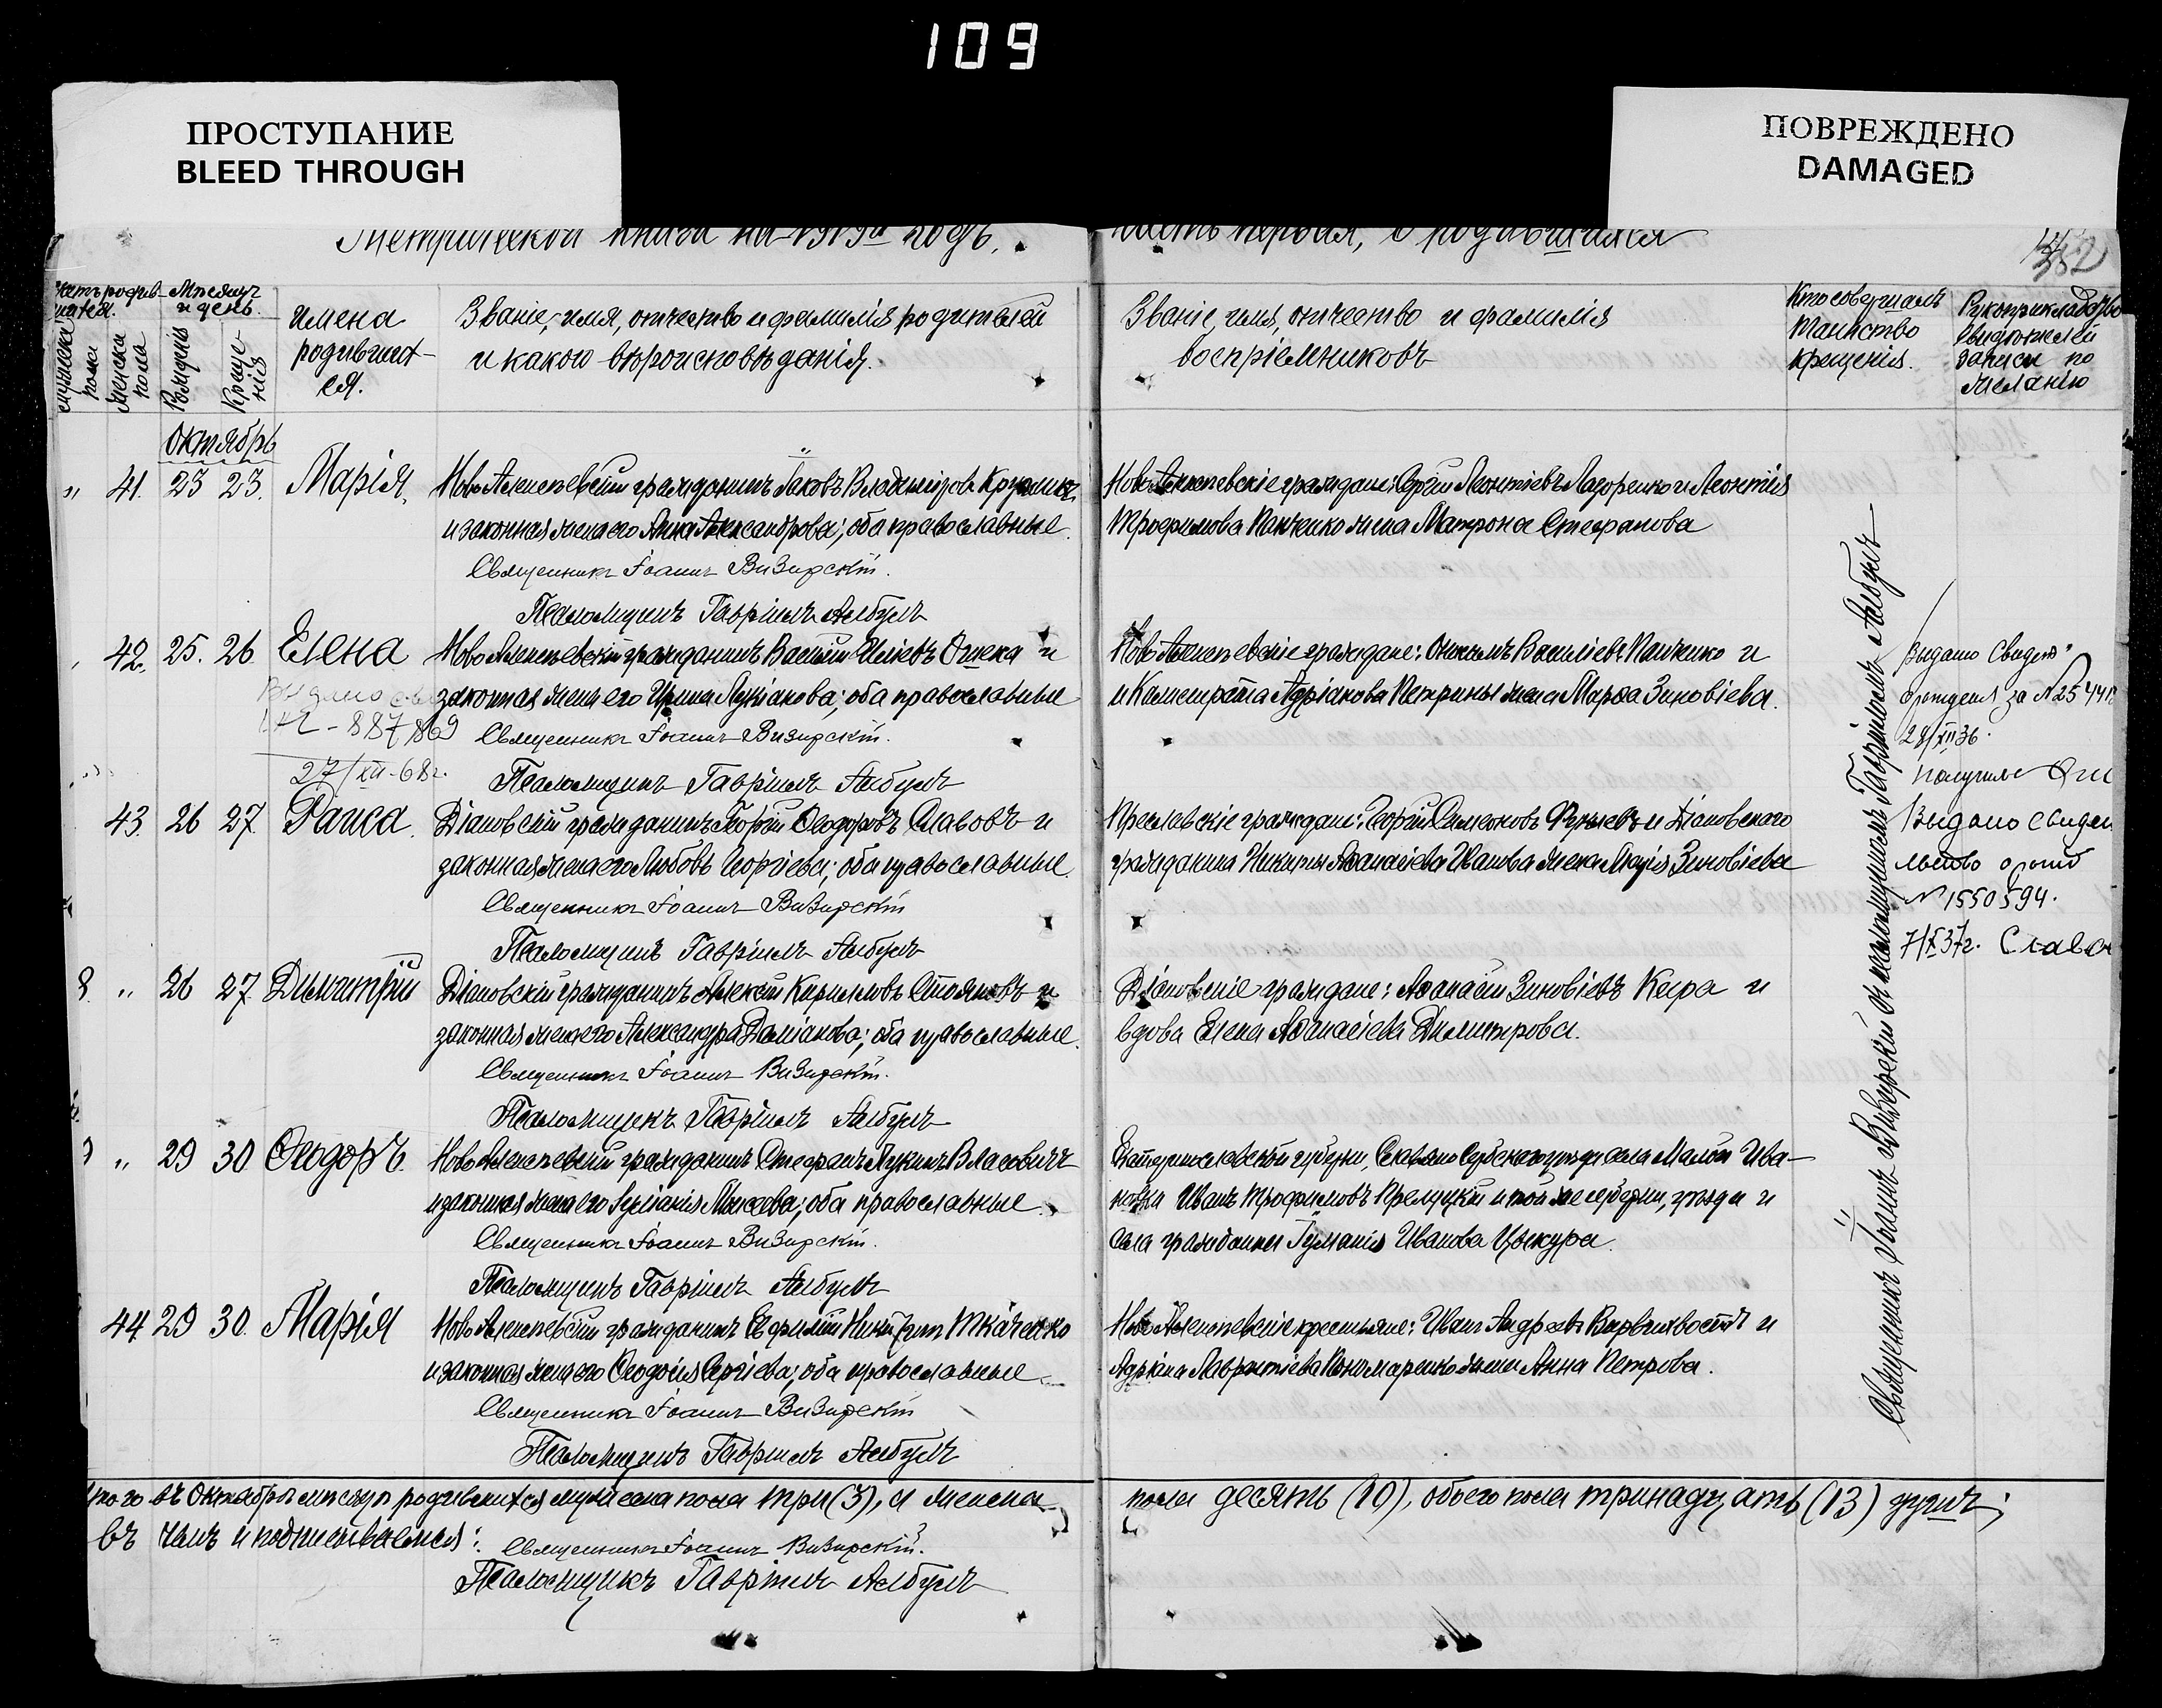 109
ПРОСТУПАНИЕ
BLEED THROUGH
ПОВРЕЖДЕНО
DAMAGED
Метрической книги на 1919й годъ.
часть первая, о родившихся
Мѣсяцъ
и день.
мужеска пола
женска пола
Рожденія
Крещенія
Имена
родившихся.
Званіе, имя, отчество и фамилія родителей
и какого вѣроисповѣданія.
Званіе, имя, отчество и фамилія
воспріемниковъ
Кто совершалъ
таинство
крещенія.
Рукоприкладство
свидѣтелей
записи по
желанію
Октябрь
" 41. 23 23. Марія.
Ново Алексѣевскій гражданинъ Іаковъ Владиміровъ
и законная жена его Анна Александрова; оба православные.
Священникъ Іоаннъ Визирскій.
Псаломщикъ Гавріилъ Албулъ
Ново Алексѣевскіе граждане: Сергій Леонтіевъ и Леонтія
Трофимова Панченко жена Матрона Стефанова
42. 25. 26. Елена
Ново Алексѣевскій гражданинъ Василій и
законная жена его Ирина Лукіанова; оба православные
Священникъ Іоаннъ Визирскій.
Псаломщикъ Гавріилъ Албулъ
Выдано
887869
27/XII-68г.
Ново Алексѣевскіе граждане: Василіевъ Панченко и
и Адріанова Петрины жена Марѳа Зиновіева.
Выдано Свидет
за N 25441
28/XII 36.
получил
43. 26 27. Раиса.
Діановскій гражданинъ Георгій Ѳеодоровъ Славовъ и
законная жена его Любовь Георгіева; оба православные.
Священникъ Іоаннъ Визирскій
Псаломщикъ Гавріилъ Албулъ
Преславскіе граждане: Георгій Симеоновъ и Діановскаго
гражданина Никиты Аѳанасіева Иванова жена Зиновіева
Выдано свиде
N 1550594.
7/X 37г. Славо
8. " 26 27. Димитрій
Діановскій гражданинъ Алексій Кирилловъ Стояновъ и
законная жена его Александра Даміанова; оба православные.
Священникъ Іоаннъ Визирскій.
Псаломщикъ Гавріилъ Албулъ
Діановскіе граждане: Аѳанасій Зиновіевъ Кира и
вдова Елена Аѳанасіева Димитрова.
" 29 30. Ѳеодоръ.
Ново Алексѣевскій гражданинъ Стефанъ Лукинъ Власовичъ
и законная жена его Іуліанія Моисеева; оба православные
Священникъ Іоаннъ Визирскій.
Псаломщикъ Гавріилъ Албулъ
Екатеринославской губерніи, Славяно Сербскаго уѣзда села Малой Ива-
новки Иванъ Трофимовъ и той же губерніи, уѣзда и
села гражданка Іуліанія Иванова Цыкура.
44. 29 30. Марія
Ново Алексѣевскій гражданинъ Евфимій Ткаченко
и законная жена его Ѳеодосія Сергіева; оба православные
Священникъ Іоаннъ Визирскій
Псаломщикъ Гавріилъ Албулъ
Ново Алексѣевскіе крестьяне: Иванъ Андреевъ и
Лаврентіева Пономаренко жена Анна Петрова.
Священникъ Іоаннъ Визирскій съ псаломщикомъ Гавріиломъ Албулъ
Итого въ Октябрѣ мѣсяцѣ родившихся мужеска пола три (3), а женска
пола десять (10), обоего пола тринадцать (13) душъ;
въ чемъ и подписываемся:
Священникъ Іоаннъ Визирскій.
Псаломщикъ Гавріилъ Албулъ